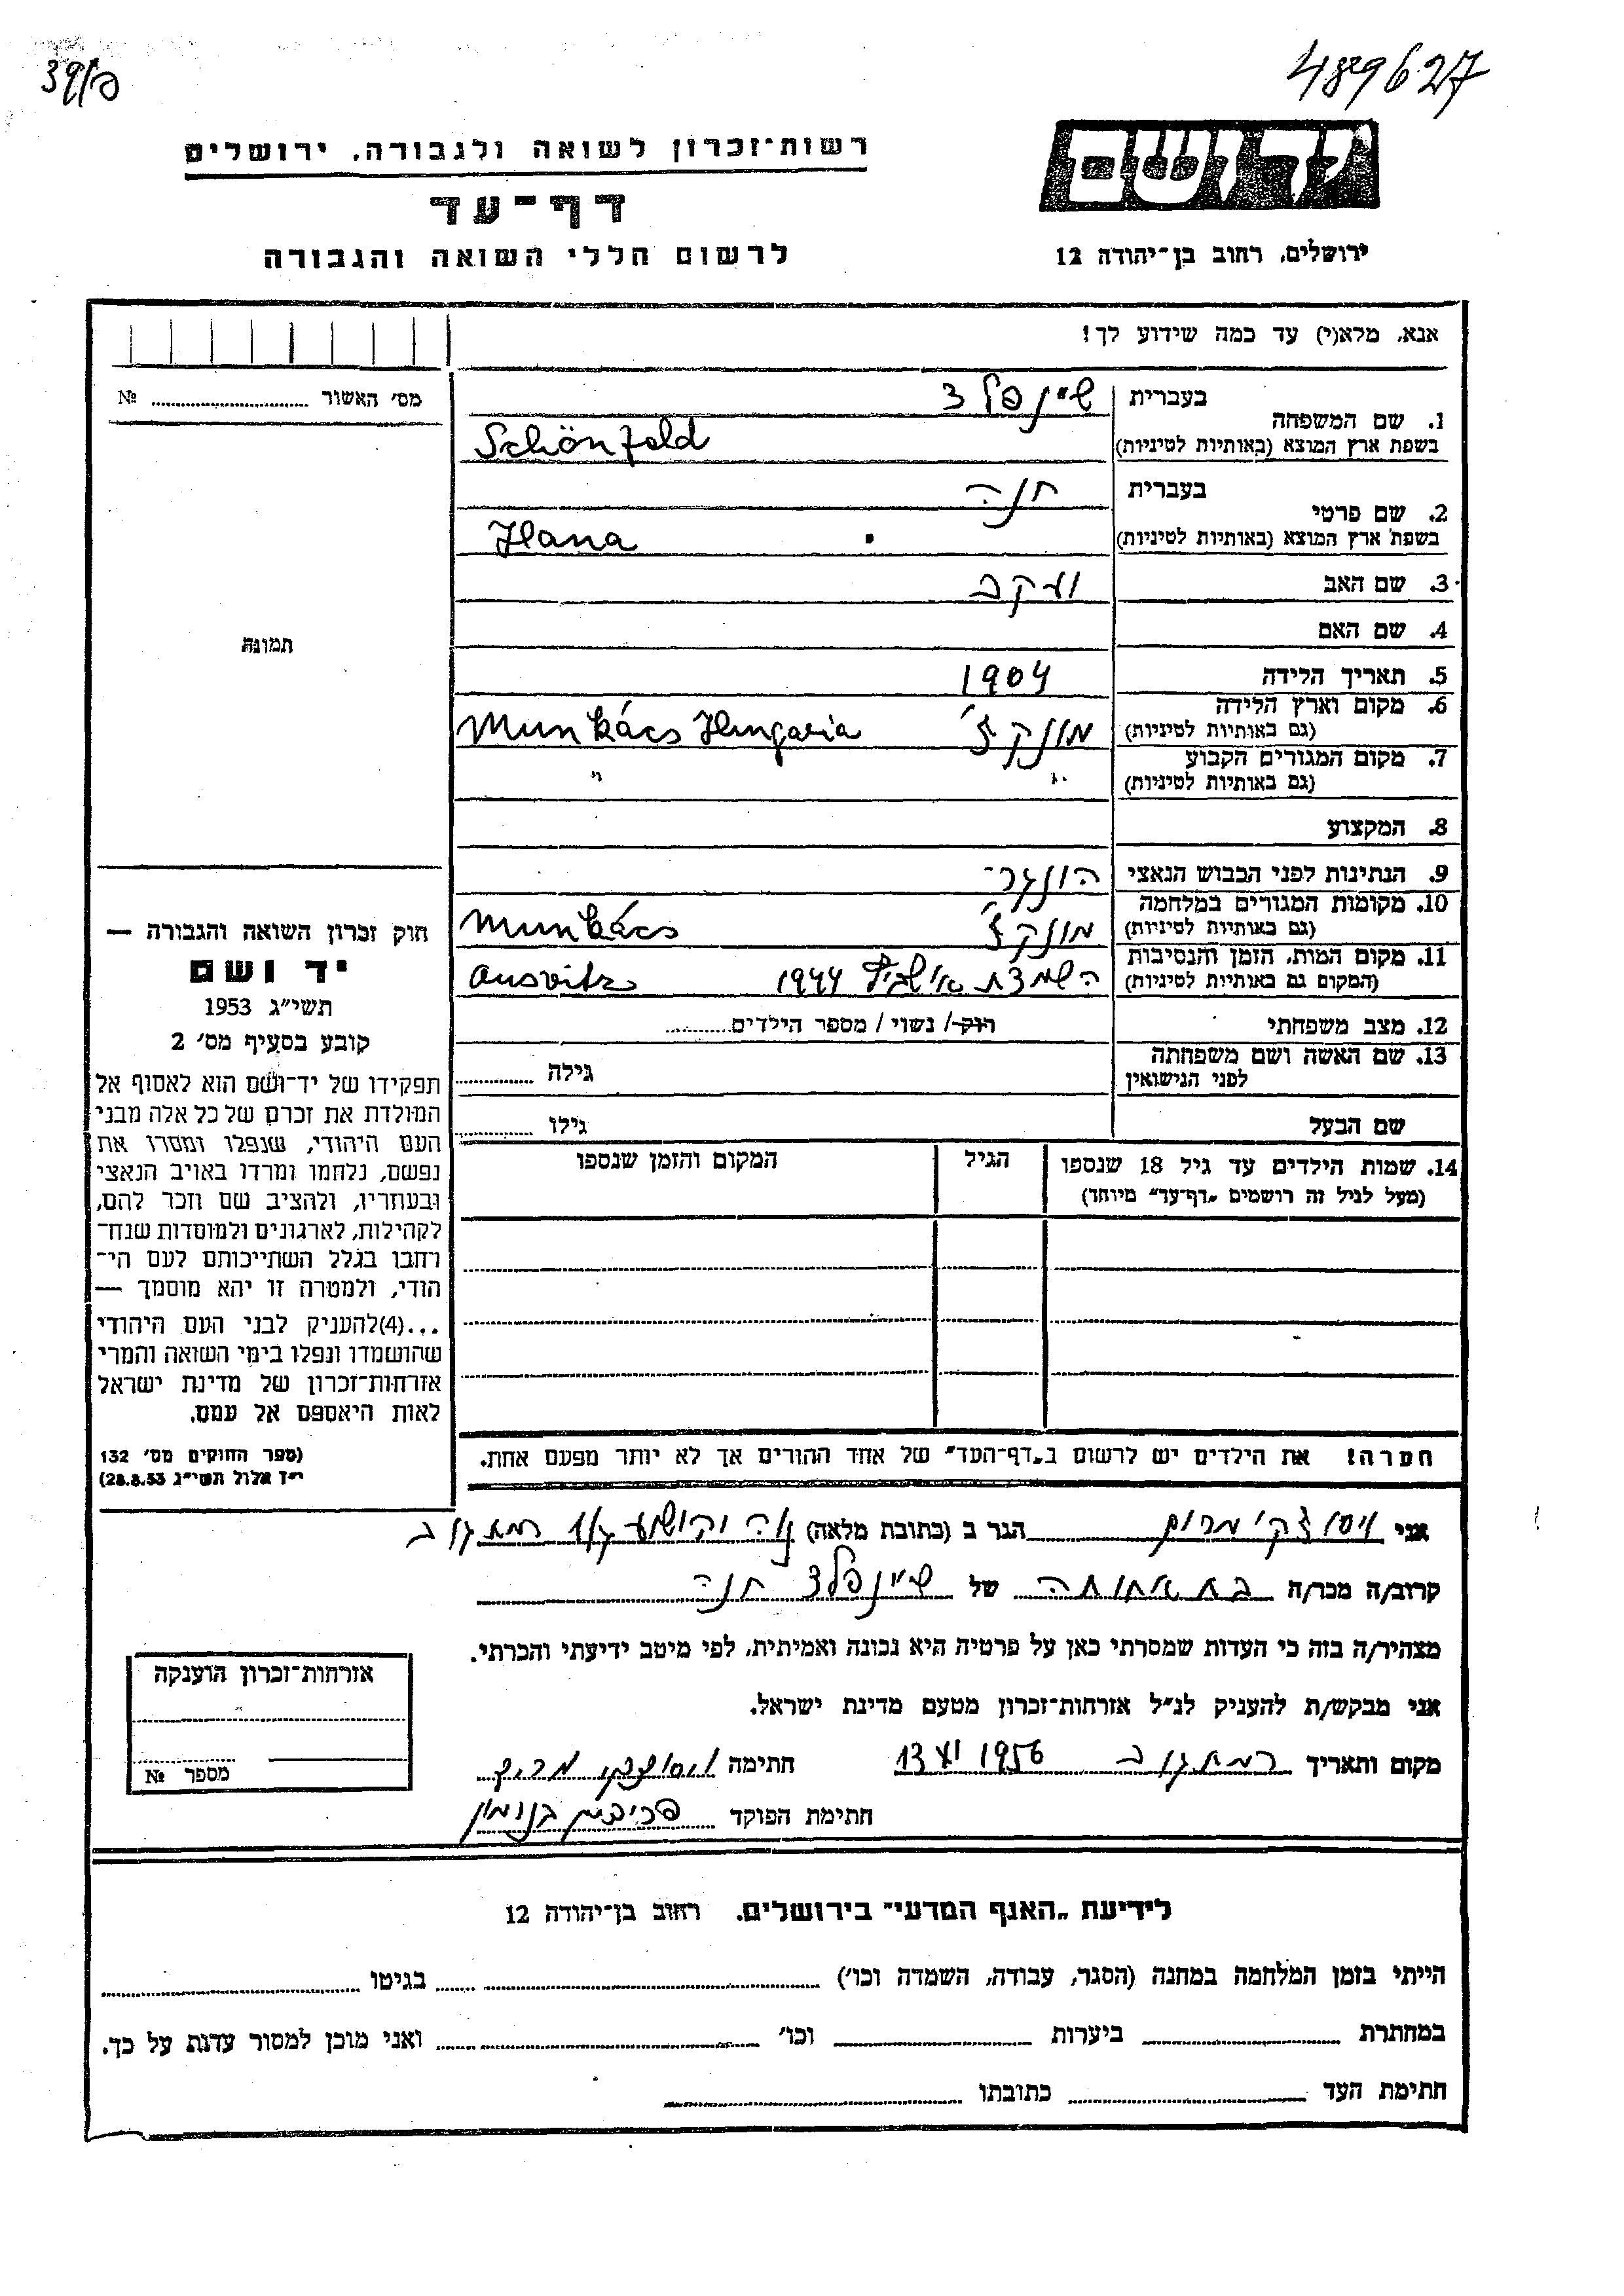 39/פ
489627
יד ושם
רשות־זכרון לשואה ולגבורה, ירושלים
דף־עד
לרשום חללי השואה והגבורה
ירושלים, רחוב בן־יהודה 12
אנא, מלא(י) עד כמה שידוע לך!
מס׳ האשור № 
1. שם המשפחה בעברית שיינפלד
בשפת ארץ המוצא (באותיות לטיניות) Schönfeld
2. שם פרטי בעברית חנה
בשפת ארץ המוצא (באותיות לטיניות) Hana
3. שם האב יעקב
4. שם האם
תמונה
5. תאריך הלידה 1904
6. מקום וארץ הלידה
(גם באותיות לטיניות) מונקץ׳ Munkács Hungaria
7. מקום המגורים הקבוע
(גם באותיות לטיניות) " "
8. המקצוע
9. הנתינות לפני הכבוש הנאצי הונגר־
10. מקומות המגורים במלחמה
(גם באותיות לטיניות) מונקץ׳ Munkács
11. מקום המות, הזמן והנסיבות
(המקום גם באותיות לטיניות) השמדת 1944 Ausvitz
12. מצב משפחתי רוק/ נשוי / מספר הילדים
13. שם האשה ושם משפחתה
לפני הנישואין גילה
שם הבעל גילו
14. שמות הילדים עד גיל 18 שנספו הגיל המקום והזמן שנספו
(מעל לגיל זה רושמים „דף־עד״ מיוחד)
חוק זכרון השואה והגבורה —
יד ושם
תשי״ג 1953
קובע בסעיף מס׳ 2
תפקידו של יד־ושם הוא לאסוף אל
המולדת את זכרם של כל אלה מבני
העם היהודי, שנפלו ומסרו את
נפשם, נלחמו ומרדו באויב הנאצי
ובעוזריו, ולהציב שם וזכר להם,
לקהילות, לארגונים ולמוסדות שנח־
רחבו בגלל השתייכותם לעם הי־
הודי, ולמטרה זו יהא מוסמך —
...(4)להעניק לבני העם היהודי
שהושמדו ונפלו בימי השואה והמרי
אזרחות־זכרון של מדינת ישראל
לאות היאספם אל עמם.
(ספר החוקים מס׳ 132
י״ז אלול תשי״ג 28.8.53)
הערה! את הילדים יש לרשום ב„דף־העד״ של אחד ההורים אך לא יותר מפעם אחת.
אני ויסוצקי מרים הגר ב (כתובת מלאה) נוה יהושע רמת גן ב
קרוב/ה מכר/ה בת אחותה של שיינפלד חנה
מצהיר/ה בזה כי העדות שמסרתי כאן על פרטיה היא נכונה ואמיתית, לפי מיטב ידיעתי והכרתי.
אני מבקש/ת להעניק לנ״ל אזרחות־זכרון מטעם מדינת ישראל.
מקום ותאריך רמת גן ב 13 XI 1956 חתימה ויסוצקי מרים
חתימת הפוקד
אזרחות־זכרון הוענקה
מספר №
לידיעת „האגף המדעי״ בירושלים. רחוב בן־יהודה 12
הייתי בזמן המלחמה במחנה (הסגר, עבודה, השמדה וכו׳) בגיטו
במחתרת ביערות וכו׳ ואני מוכן למסור עדות על כך.
חתימת העד כתובתו